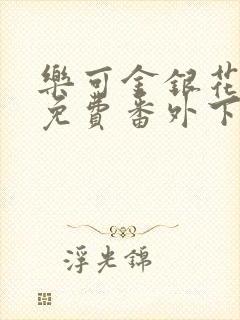 樂可金銀花
免費番外下
浮光錦